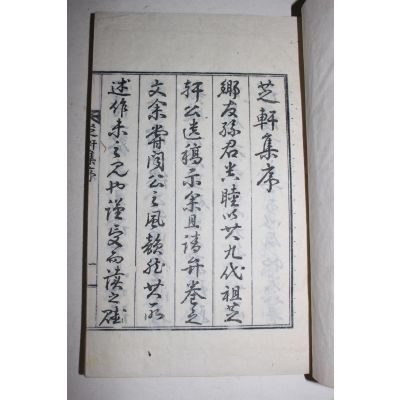 芝軒集序
鄉友孫君基睦以其九代祖芝
軒公遺稿示余且請弁卷之
文余嘗聞公之風韻然其所
述作未之見也謹受而讀之雖
芝軒集序
一